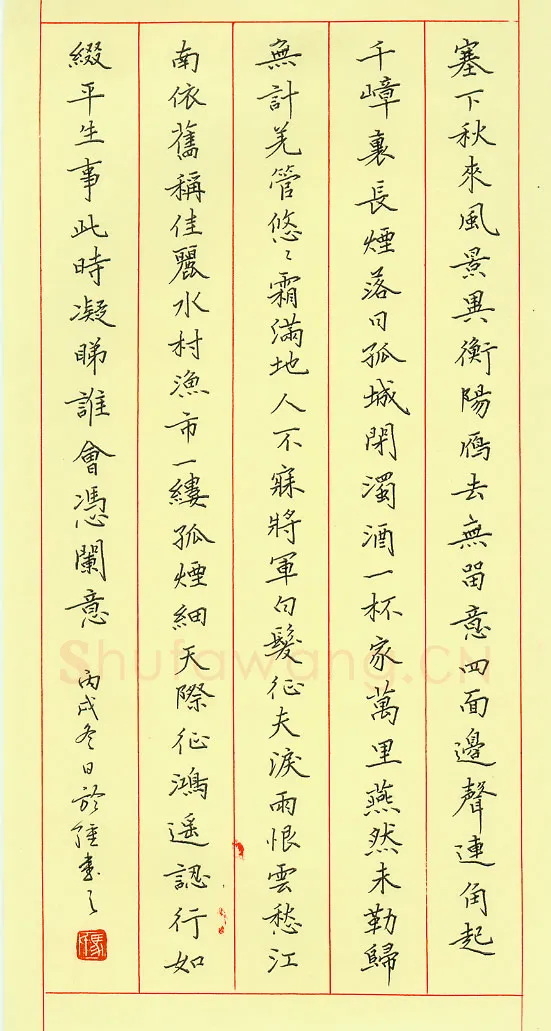 塞下秋來風景異衡陽鴈去無留意四面邊聲連角起
千嶂裏長煙落日孤城閉濁酒一杯家萬里燕然未勒歸
無計羌管悠〻霜滿地人不寐將軍白髮征夫淚雨恨雲愁江
南依舊稱佳麗水村漁市一縷孤煙細天際征鴻遥認行如
綴平生事此時凝睇誰會憑闌意
丙戌冬日於
書之
Shufawang.CN